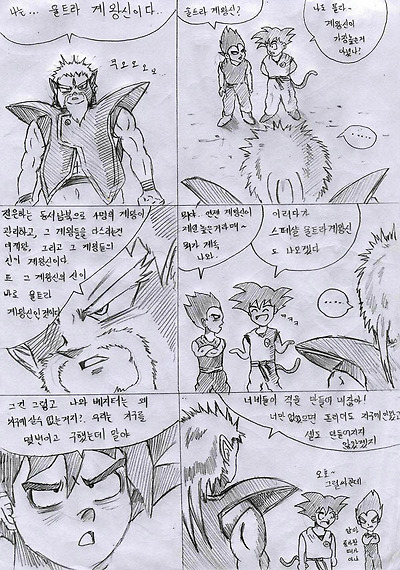 나는... 울트라 계왕신이다..
쿠오오오오
울트라 계왕신?
나도 몰라~
계왕신이
가장높은거
아녔나!
......
전우주는 동서남북으로 4명의 계왕이
관리하고, 그 계왕들을 다스리는건
대계왕, 그리고 그 계왕들의
신이 계왕신이다
또 그 계왕신의 신이
바로 울트라
계왕신인것이다
뭐야. 언젠 계왕신이
제일 높은거라며~
뭐가 계속
나와.
이러다가
스페셜 울트라계왕신
도 나오겠다
ㅋㅋㅋ
......
그건 그렇고 나와 베지터는 왜
지구에 살수 없는거지? 우리는 지구를
몇번이고 구했는데 말야
너네들이 적을 만들어 내잖아!
너만 없었으면 프리더도 지구에 안왔고
셀도 만들어지지
않았겠지
오호~
그런가